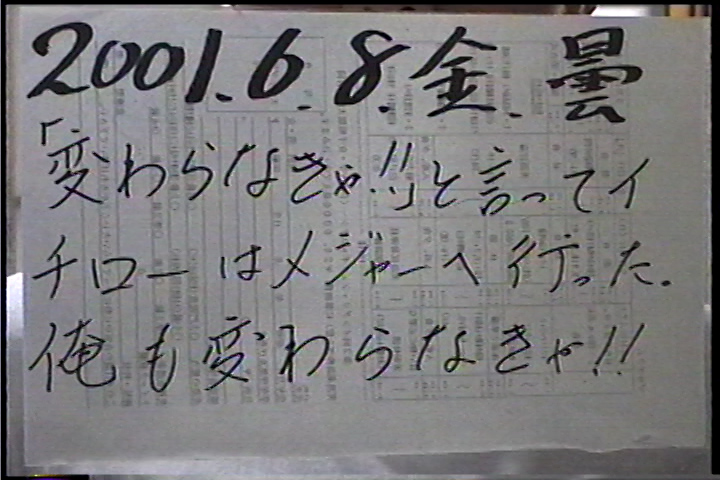 2001.6.8.金.曇
「変わらなきゃ!!」と言ってイ
チローはメジャーへ行った。
俺も変わらなきゃ!!